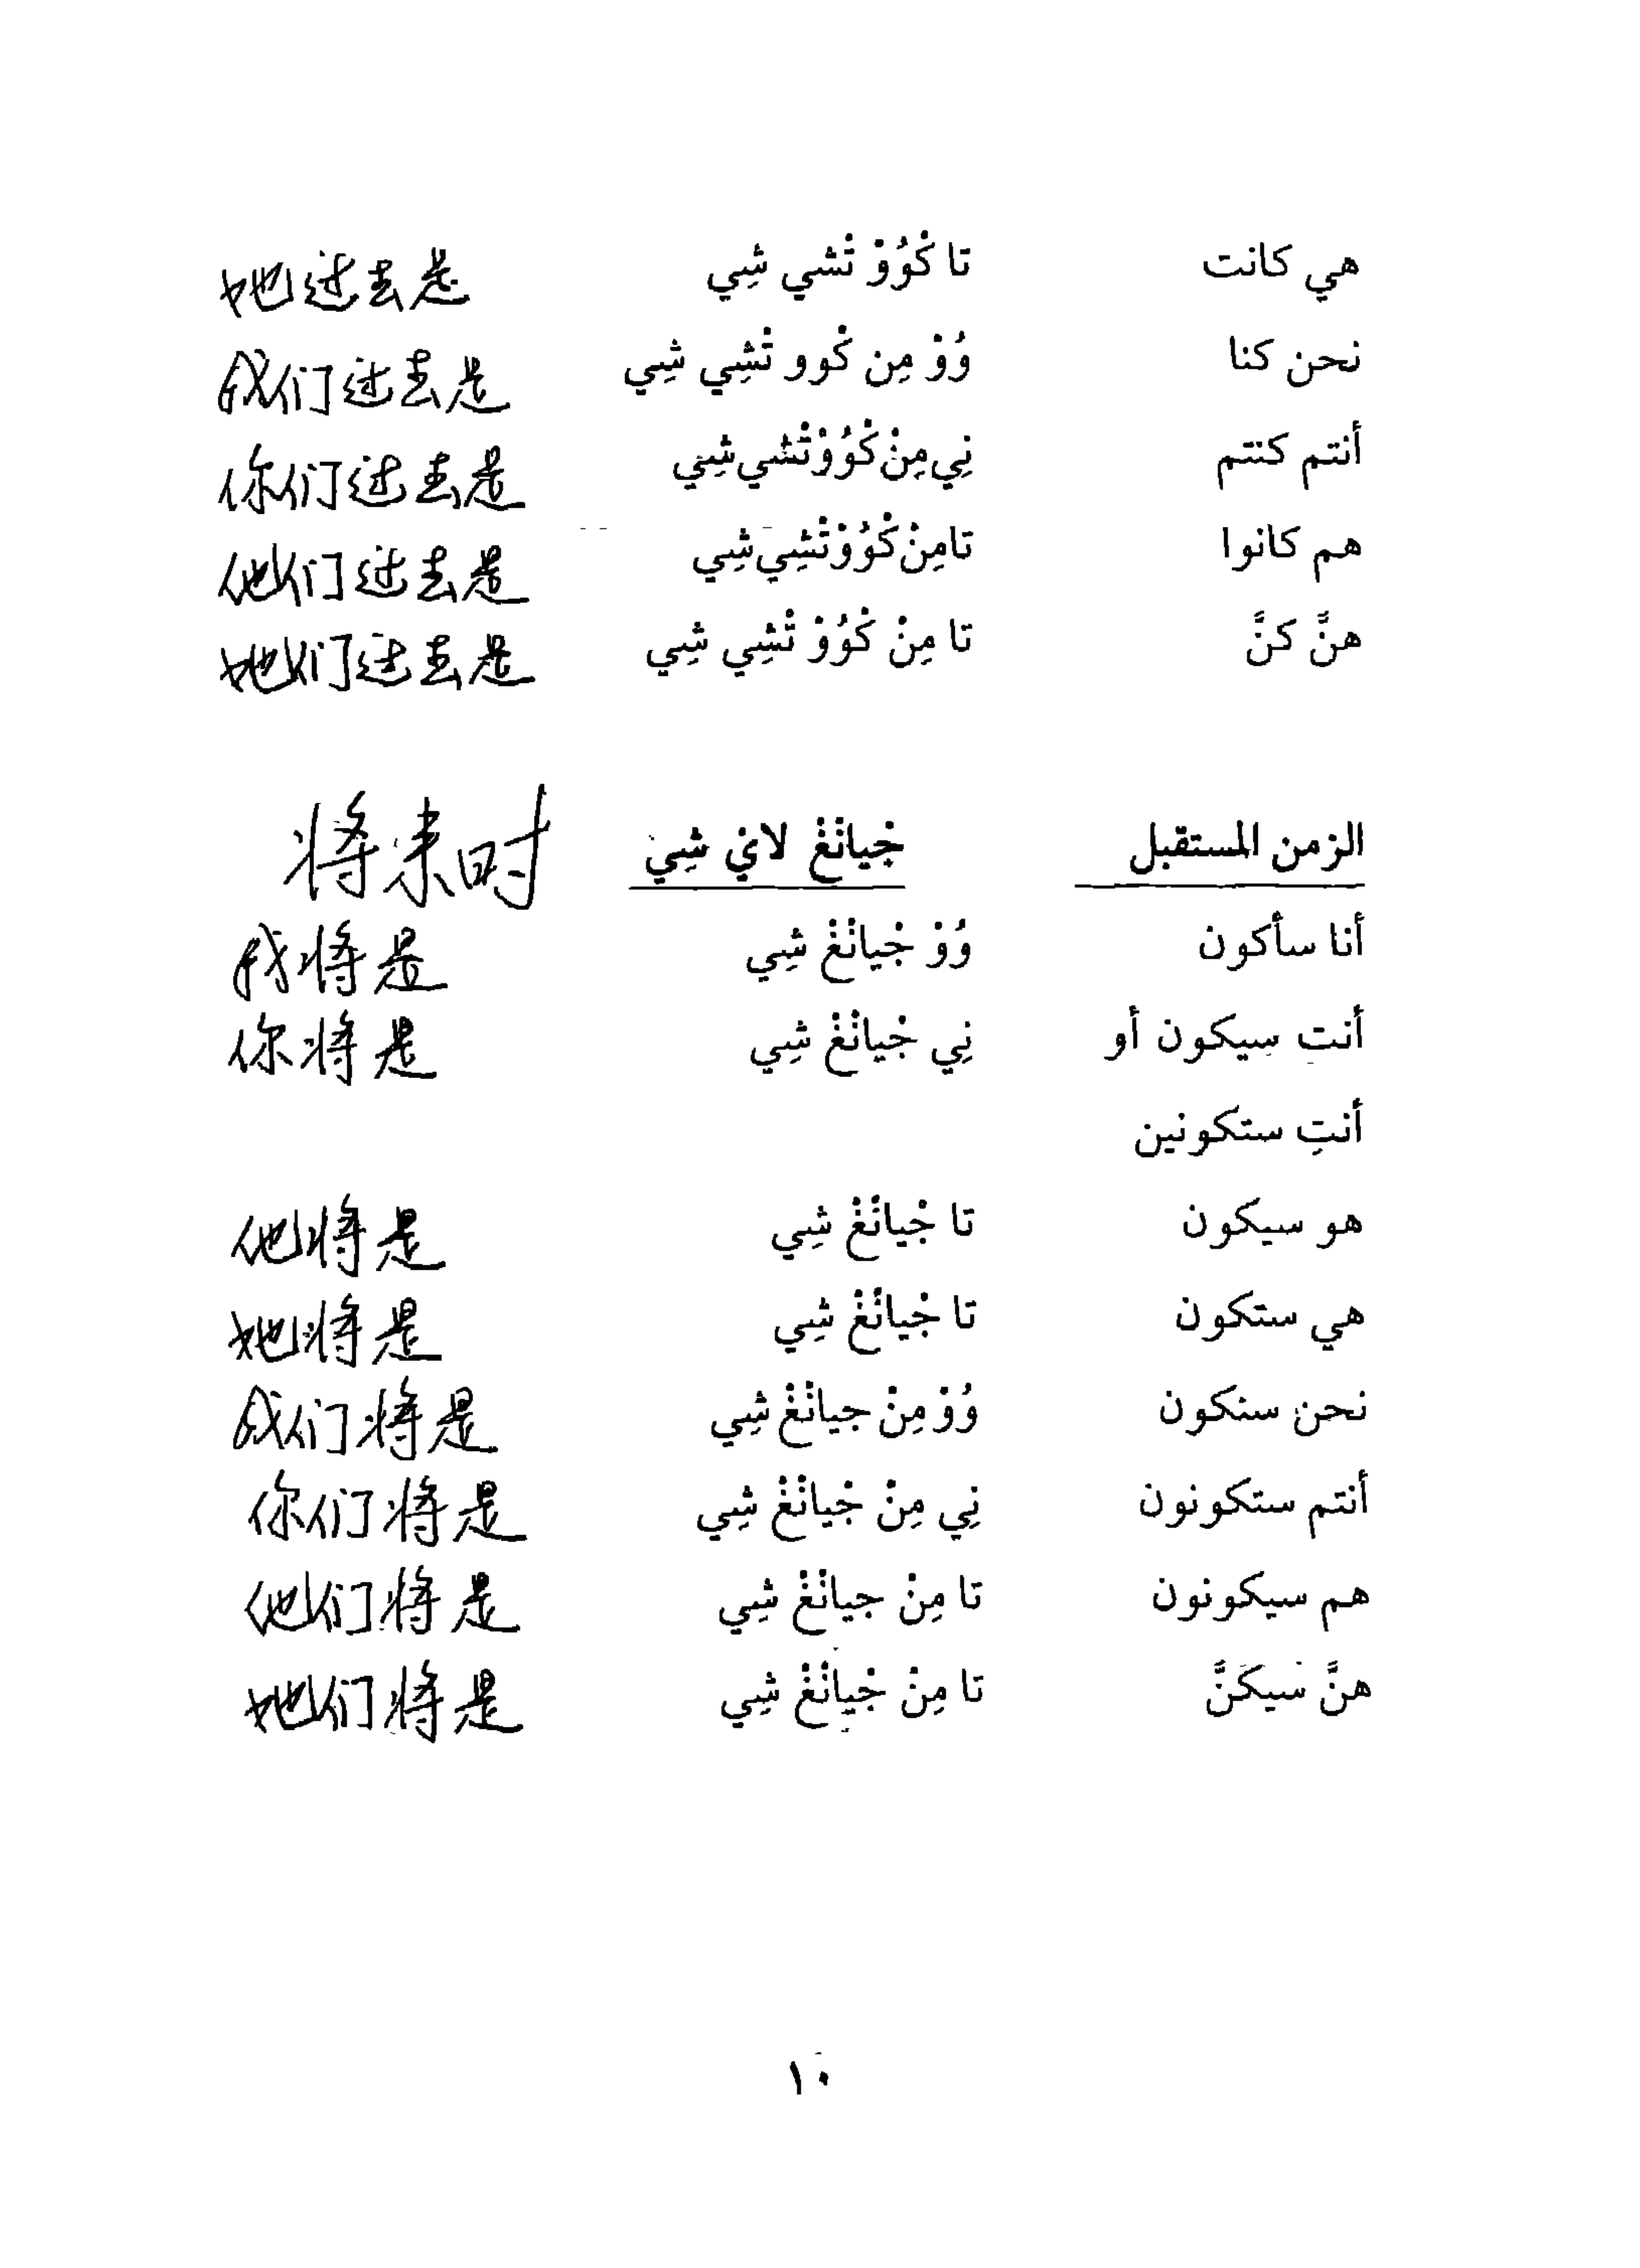 هي كانت تا كْوُوْ تْشي شِي 她过去是
نحن كنا وُوْ مِن كْوو تْشِي شِي 我们过去是
أنتم كنتم نِي مِنْ كْوُوْ تْشي شِي 你们过去是
هم كانوا تا مِنْ كْوُوْ تْشِي شِي 他们过去是
هنَّ كنَّ تا مِنْ كْوُوْ تْشِي شِي 她们过去是
الزمن المستقبل جْيانْغْ لايْ شِي 将来时
أنا سأكون وُوْ جْيانْغْ شِي 我将是
أنت سيكون أو نِي جْيانْغْ شِي 你将是
أنتِ ستكونين
هو سيكون تا جْيانْغْ شِي 他将是
هي ستكون تا جْيانْغْ شِي 她将是
نحن سنكون وُوْ مِنْ جيانْغْ شِي 我们将是
أنتم ستكونون نِي مِنْ جْيانْغْ شِي 你们将是
هم سيكونون تا مِنْ جيانْغْ شِي 他们将是
هنَّ سيكَنَّ تا مِنْ جْيانْغْ شِي 她们将是
١٠